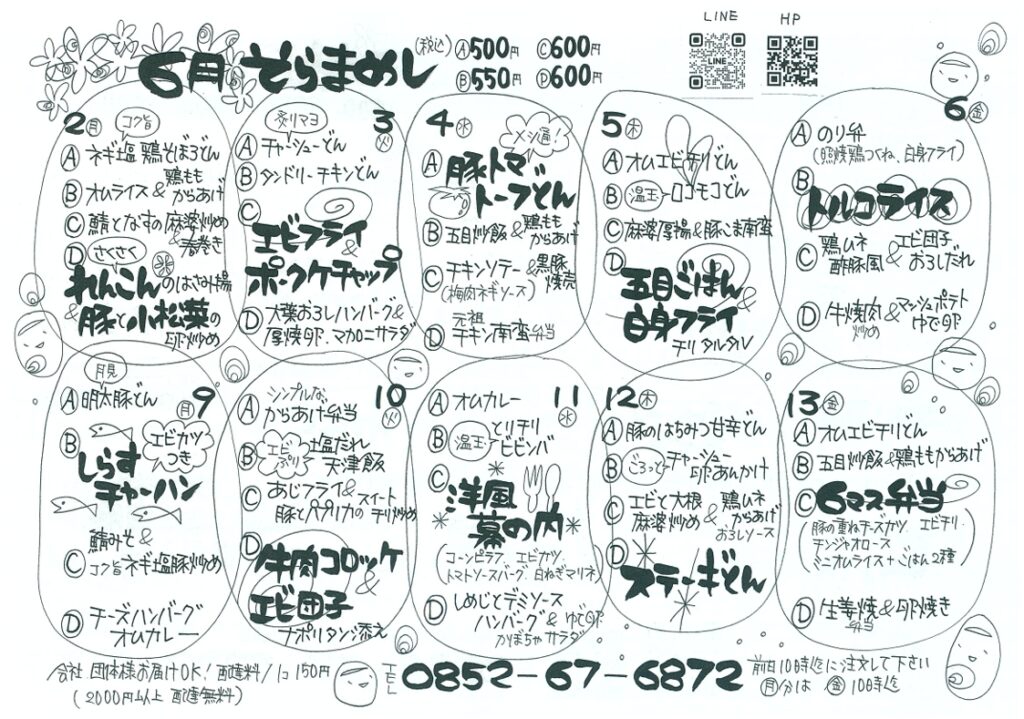 LINE HP
6月 そらまめし
(税込) Ⓐ500円 Ⓒ600円
Ⓑ550円 Ⓓ600円
2㊊
コク旨
Ⓐ ネギ塩鶏そぼろどん
Ⓑ オムライス&鶏ももからあげ
Ⓒ 鯖となすの麻婆炒め&春巻き
Ⓓ さくさく
れんこんのはさみ揚
&豚と小松菜の
卵炒め
3㊋
炙りマヨ
Ⓐ チャーシューどん
Ⓑ タンドリーチキンどん
Ⓒ エビフライ
&
ポークケチャップ
Ⓓ 大葉おろしハンバーグ&
厚焼卵、マカロニサラダ
4㊌
メシ通!
Ⓐ 豚トマ
トーフどん
Ⓑ 五目炒飯&鶏もも
からあげ
Ⓒ チキンソテー&黒豚
焼売
(梅肉ネギソース)
Ⓓ 元祖
チキン南蛮弁当
5㊍
Ⓐ オムエビチリどん
Ⓑ 温玉ロコモコどん
Ⓒ 麻婆厚揚&豚こま南蛮
Ⓓ 五目ごはん
&
白身フライ
チリタルタル
6㊎
Ⓐ のり弁
(照焼鶏つくね、白身フライ)
Ⓑ トルコライス
Ⓒ 鶏ムネ
酢豚風&エビ団子
おろしだれ
Ⓓ 牛焼肉
炒め&マッシュポテト
ゆで卵
9㊊
月見
Ⓐ 明太豚どん
Ⓑ エビカツ
つき
しらす
チャーハン
Ⓒ 鯖みそ&
コク旨ネギ塩豚炒め
Ⓓ チーズハンバーグ
オムカレー
10㊋
Ⓐ シンプルな、
からあげ弁当
Ⓑ エビ
ぷり
塩だれ
天津飯
Ⓒ あじフライ&
豚とパプリカのスイート
チリ炒め
Ⓓ 牛肉コロッケ
&
エビ団子
ナポリタン添え
11㊌
Ⓐ オムカレー
Ⓑ 温玉 とりチリ
ビビンバ
Ⓒ 洋風
幕の内
(コーンピラフ、エビカツ、
トマトソースバーグ、白ねぎマリネ)
Ⓓ しめじとデミソース
ハンバーグ&ゆで卵
かぼちゃサラダ
12㊍
Ⓐ 豚のはちみつ甘辛どん
Ⓑ ごろっと チャーシュー
卵あんかけ
Ⓒ エビと大根
麻婆炒め&鶏ムネ
からあげ
おろしソース
Ⓓ ステーキどん
13㊎
Ⓐ オムエビチリどん
Ⓑ 五目炒飯&鶏ももからあげ
Ⓒ 6マス弁当
(豚の重ねチーズカツ エビチリ
チンジャオロース
ミニオムライス+ごはん2種)
Ⓓ 生姜焼&卵焼き
弁当
会社 団体様お届けOK! 配達料/1コ150円
(2000円以上 配達無料)
TEL 0852-67-6872
前日10時迄に注文して下さい
㊊分は ㊎10時迄